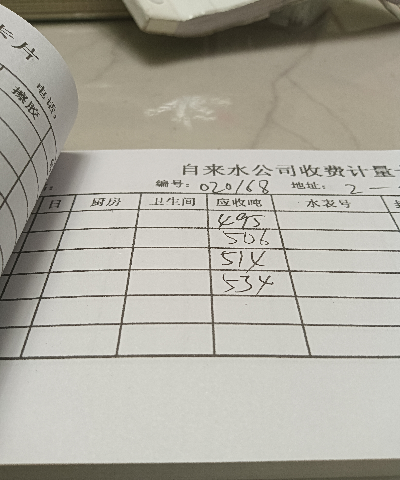 卡片
电话:
擦胶
自来水公司收费计量
编号: 020168 地址: 2 —
日 厨房 卫生间 应收吨 水表号
495
506
514
534